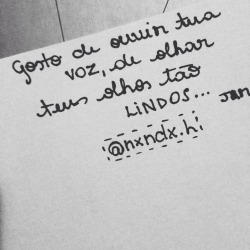 Gosto de ouvir tua
voz, de olhar
teus olhos tão
LINDOS...
@nxndx.h